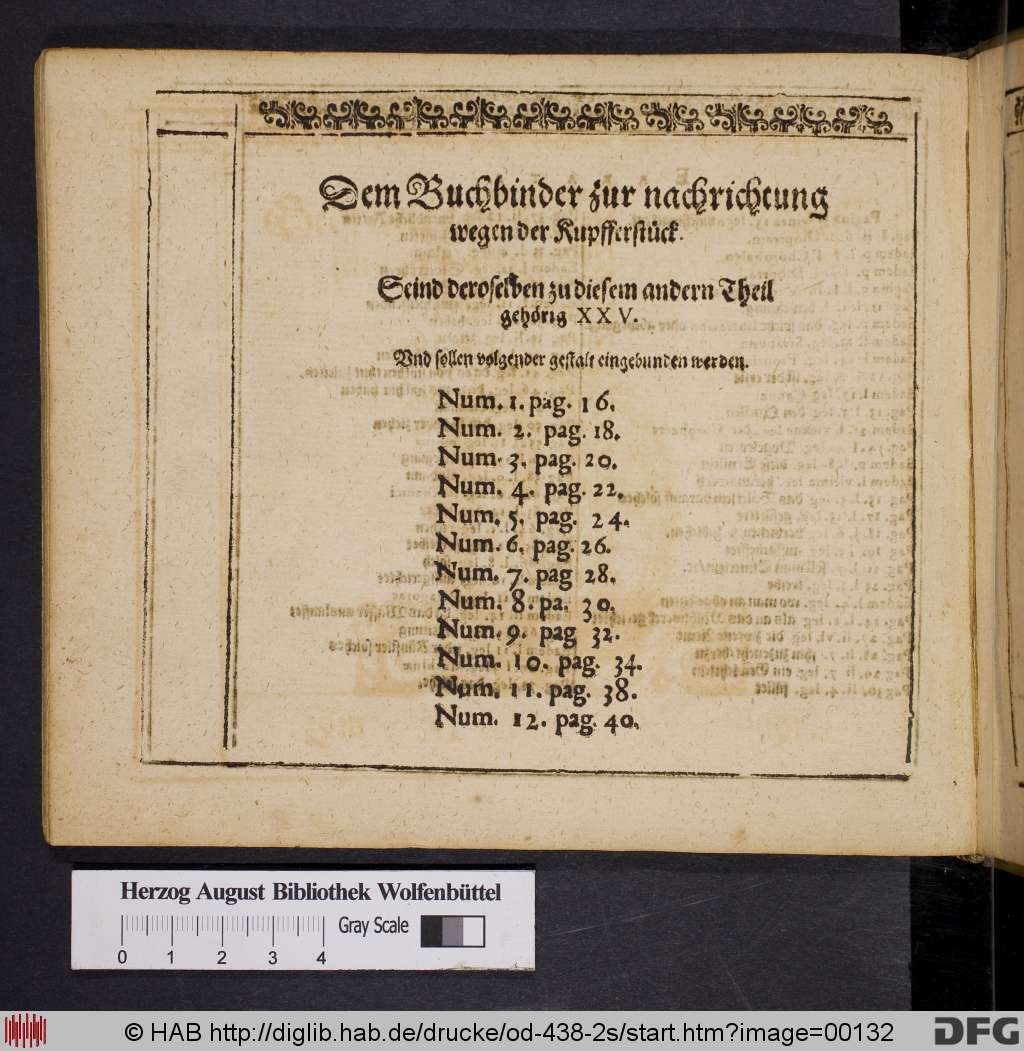 Dem Buchbinder zur nachrichtung
wegen der Kupfferstück.
Seind deroselben zu diesem andern Theil
gehörig XXV.
Vnd sollen volgender gestalt eingebunden werden.
Num. 1. pag. 16.
Num. 2. pag. 18.
Num. 3. pag. 20.
Num. 4. pag. 22.
Num. 5. pag. 24.
Num. 6. pag. 26.
Num. 7. pag 28.
Num. 8. pa. 30.
Num. 9. pag 32.
Num. 10. pag. 34.
Num. 11. pag. 38.
Num. 12. pag. 40.
Herzog August Bibliothek Wolfenbüttel
Gray Scale
0 1 2 3 4
© HAB http://diglib.hab.de/drucke/od-438-2s/start.htm?image=00132
DFG